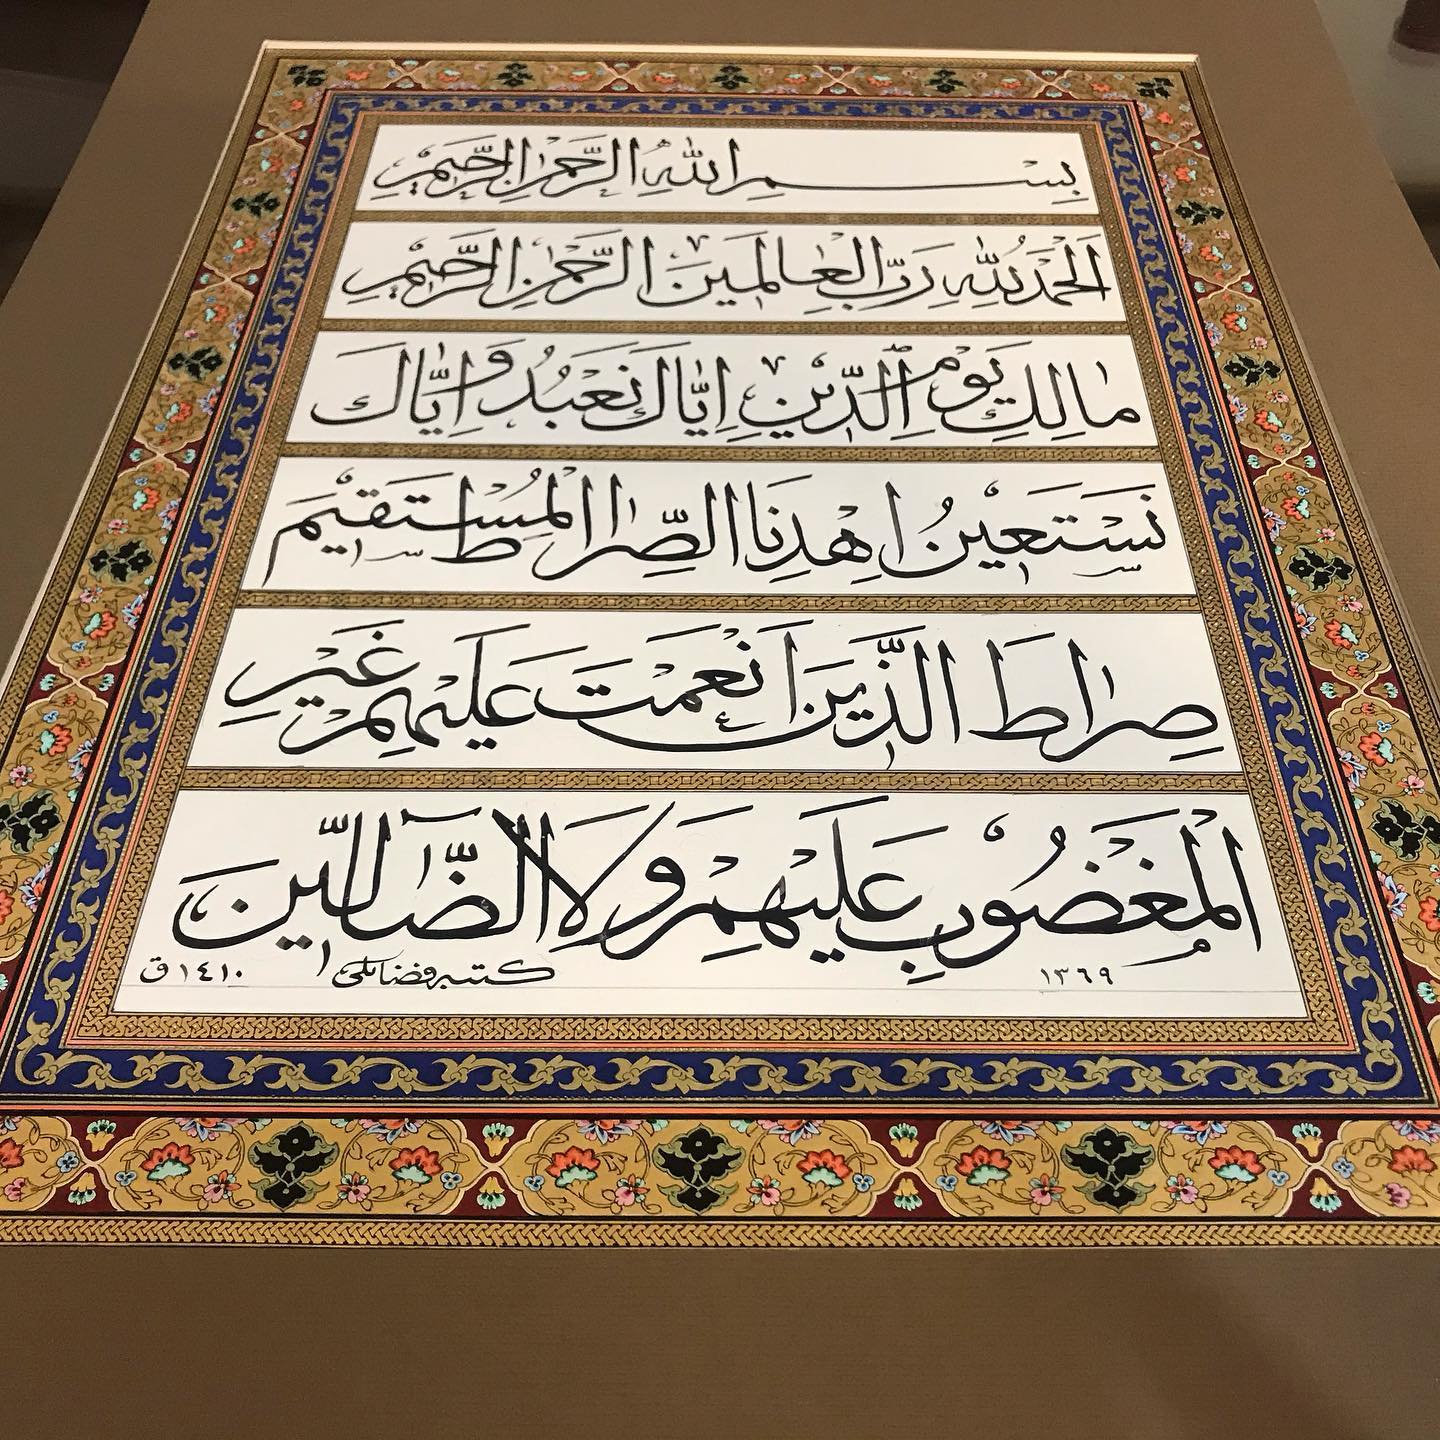 بِسْمِ اللهِ الرَّحْمٰنِ الرَّحِيْمِ
اَلْحَمْدُ لِلّٰهِ رَبِّ الْعٰالَمِيْنَ الرَّحْمٰنِ الرَّحِيْمِ
مٰالِكِ يَوْمِ الدِّيْنِ اِيّٰاكَ نَعْبُدُ وَ اِيّٰاكَ
نَسْتَعِيْنُ اِهْدِنَا الصِّرٰاطَ الْمُسْتَقيْمَ
صِرٰاطَ الَّذيْنَ اَنْعَمْتَ عَلَيْهِمْ غَيْرِ
الْمَغْضُوْبِ عَلَيْهِمْ وَلَا الضَّآلّيْنَ
١٣٦٩ كتبه فضائلي ١٤١٠ ق